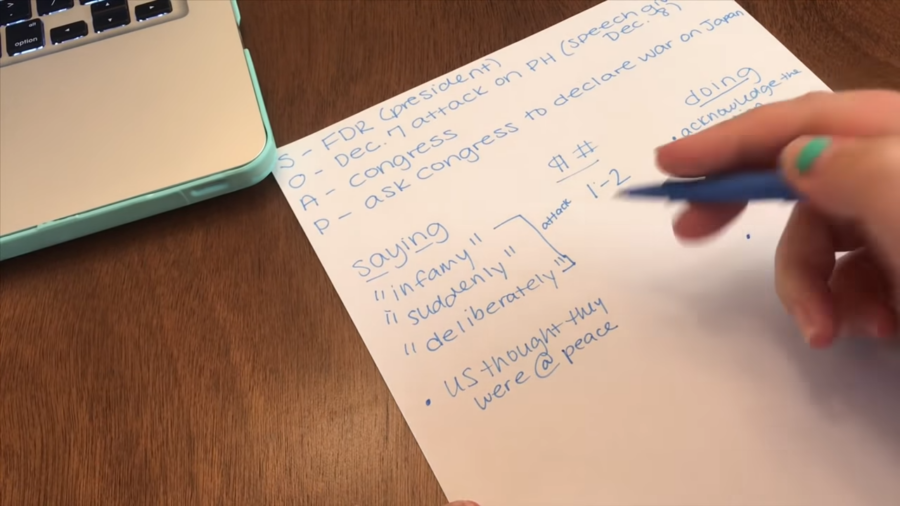 option
S - FDR (president)
O - Dec. 7 attack on PH (speech
Dec. 8)
A - congress
P - ask congress to declare war on Japan
saying
"infamy"
"suddenly"
"deliberately"
attack
• US thought they
were @ peace
¶ #
1-2
doing
• acknowledge the